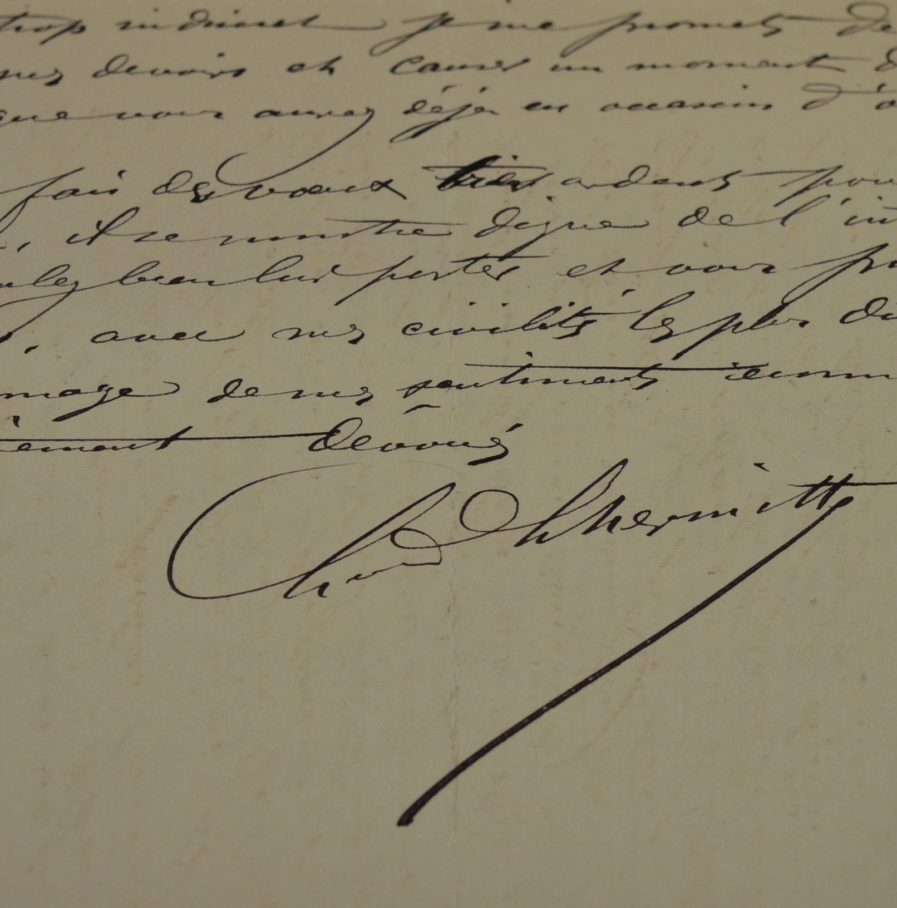 trop indiscret je me promets de
mes devoirs et causer un moment d
que vous aurez déjà eu occasion d'o
fais des vœux bien ardents pour
, il se montre digne de l'in
ulez bien lui porter et vous pr
, avec mes civilités les plus di
mmage de mes sentiments
ement dévoués
Lhermitte